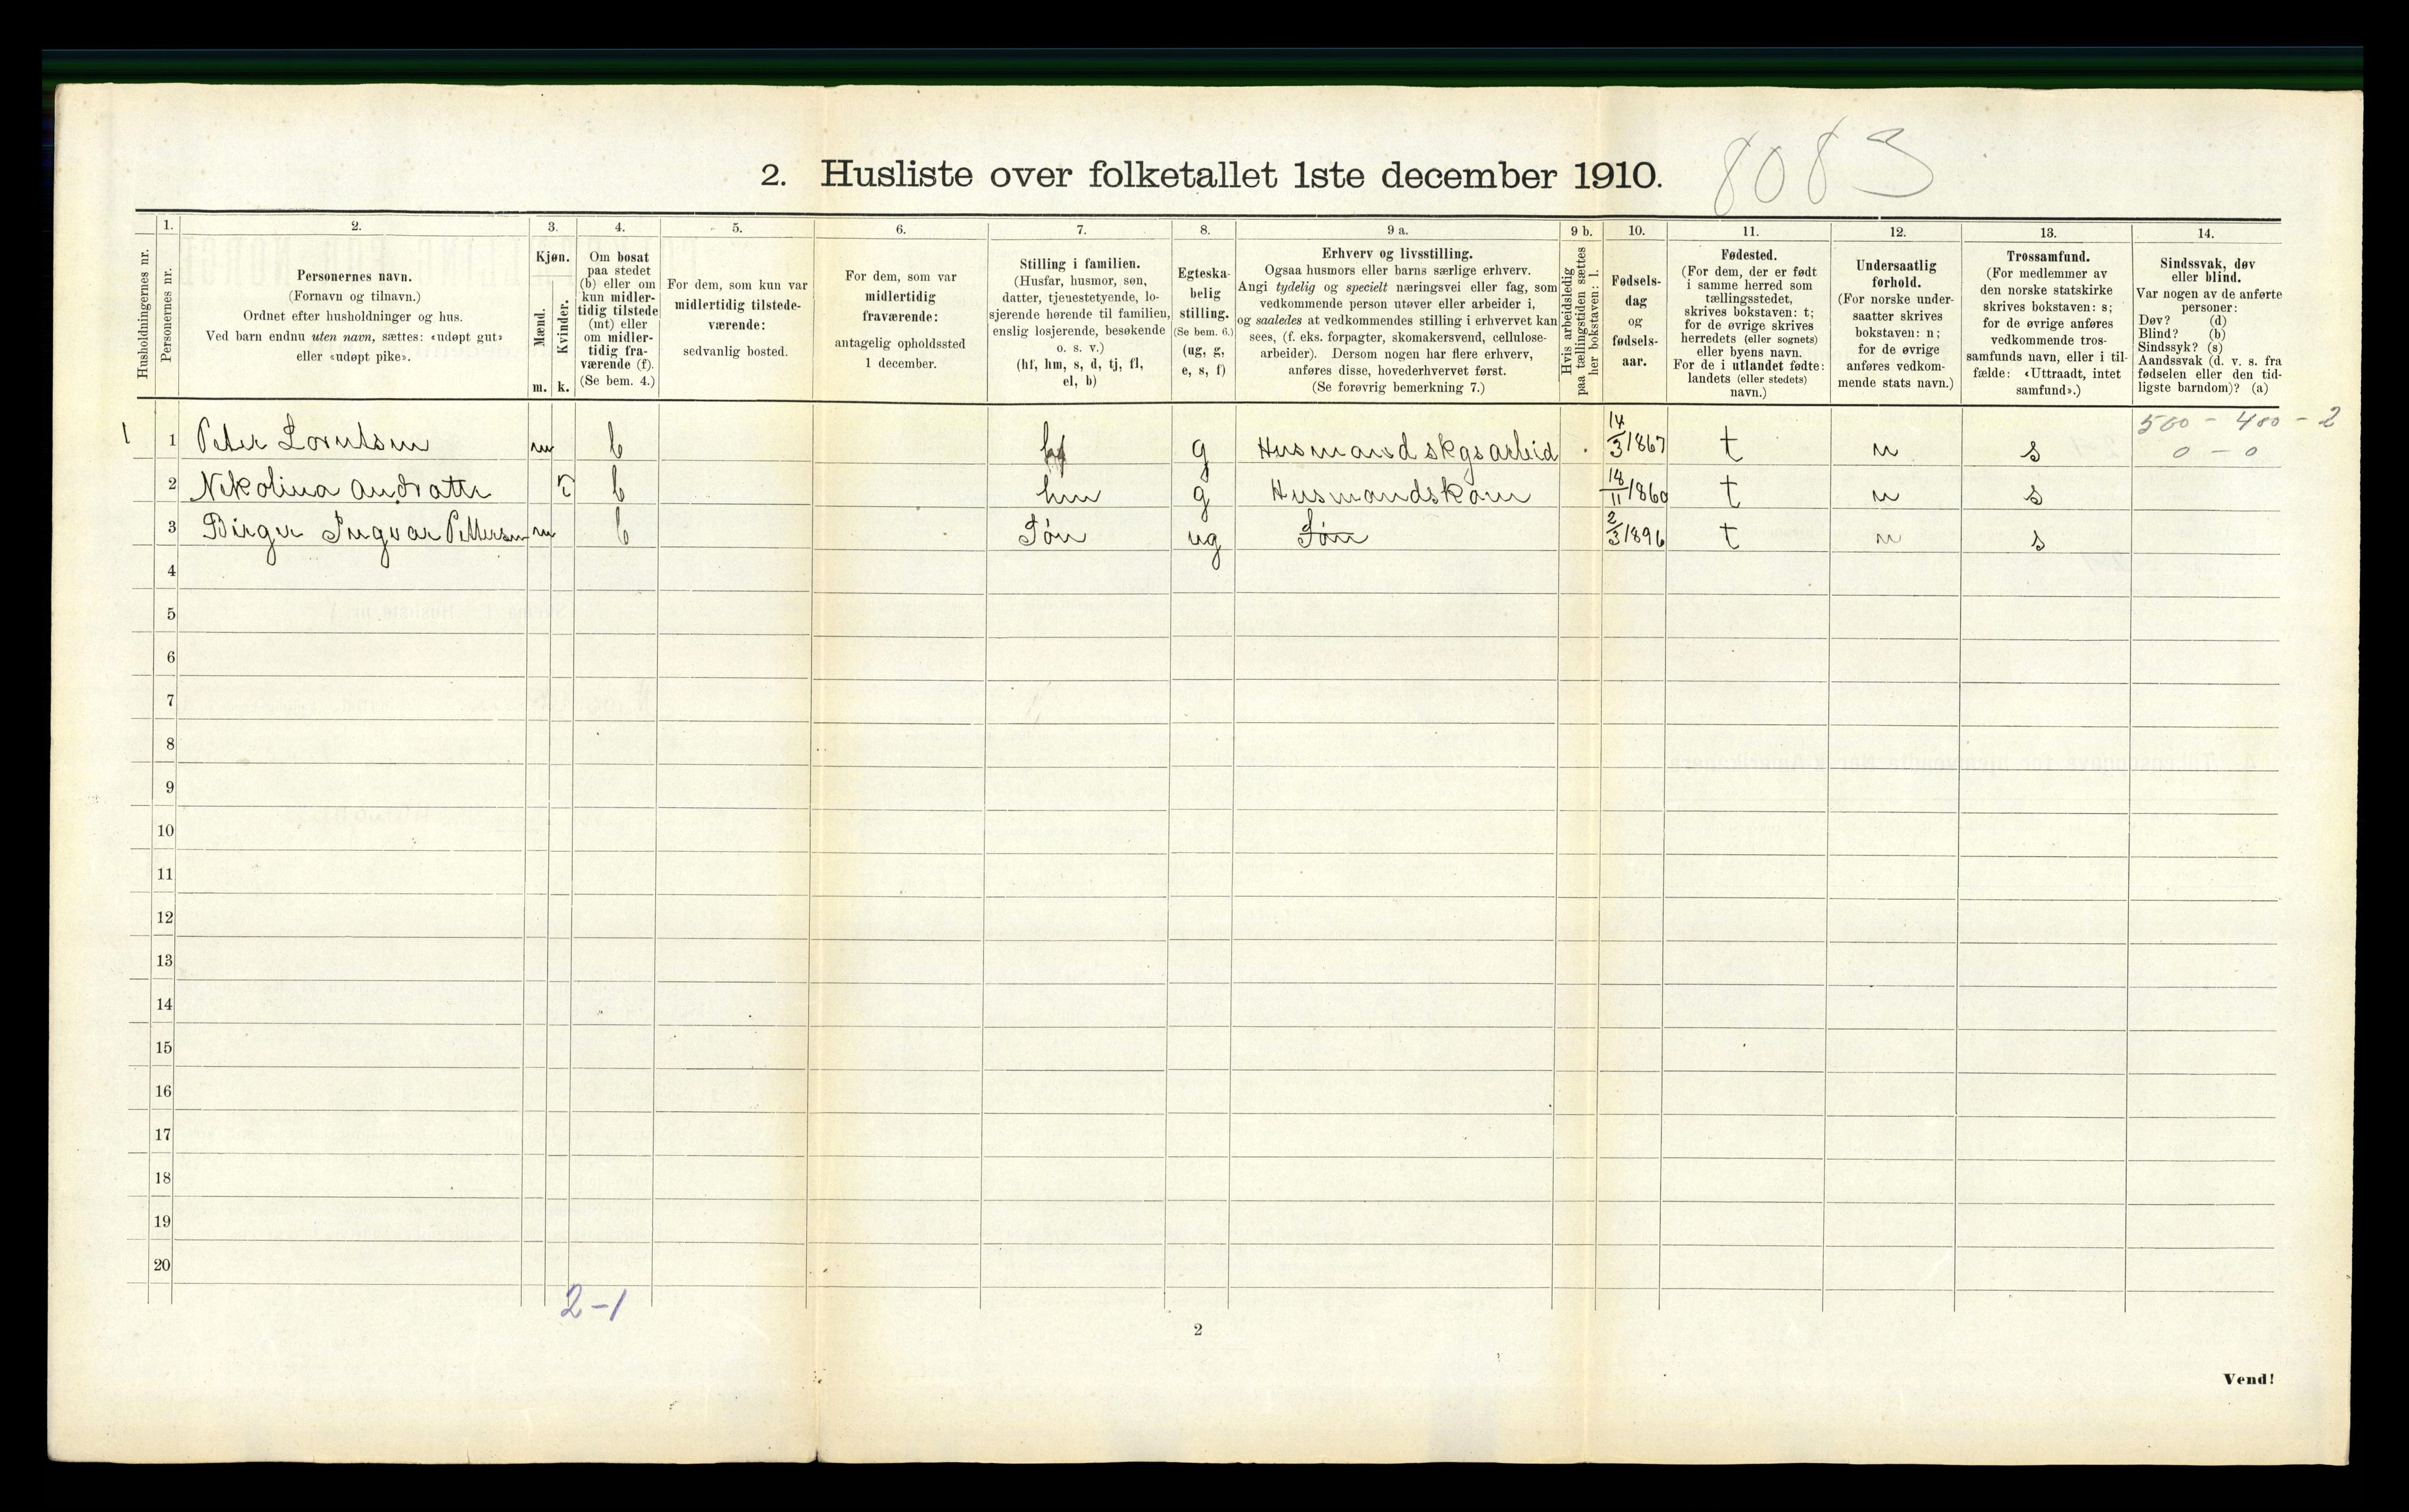 2. Husliste over folketallet 1ste december 1910.
8083
Husholdningernes nr.
1.
Personernes nr.
2.
Personernes navn.
(Fornavn og tilnavn.)
Ordnet efter husholdninger og hus.
Ved barn endnu uten navn, sættes: «udøpt gut»
eller «udøpt pike».
3.
Kjøn.
Mænd.
Kvinder.
m. k.
4.
Om bosat
paa stedet
(b) eller om
kun midler-
tidig tilstede
(mt) eller
om midler-
tidig fra-
værende (f).
(Se bem. 4.)
5.
For dem, som kun var
midlertidig tilstede-
værende:
sedvanlig bosted.
6.
For dem, som var
midlertidig
fraværende:
antagelig opholdssted
1 december.
7.
Stilling i familien.
(Husfar, husmor, søn,
datter, tjenestetyende, lo-
sjerende hørende til familien,
enslig losjerende, besøkende
o. s. v.)
(hf, hm, s, d, tj, fl,
el, b)
8.
Egteska-
belig
stilling.
(Se bem. 6.)
(ug, g,
e, s, f)
9 a.
Erhverv og livsstilling.
Ogsaa husmors eller barns særlige erhverv.
Angi tydelig og specielt næringsvei eller fag, som
vedkommende person utøver eller arbeider i,
og saaledes at vedkommendes stilling i erhvervet kan
sees, (f. eks. forpagter, skomakersvend, cellulose-
arbeider). Dersom nogen har flere erhverv,
anføres disse, hovederhvervet først.
(Se forøvrig bemerkning 7.)
9 b.
Hvis arbeidsledig
paa tællingstiden sættes
her bokstaven: l.
10.
Fødsels-
dag
og
fødsels-
aar.
11.
Fødested.
(For dem, der er født
i samme herred som
tællingsstedet,
skrives bokstaven: t;
for de øvrige skrives
herredets (eller sognets)
eller byens navn.
For de i utlandet fødte:
landets (eller stedets)
navn.)
12.
Undersaatlig
forhold.
(For norske under-
saatter skrives
bokstaven: n;
for de øvrige
anføres vedkom-
mende stats navn.)
13.
Trossamfund.
(For medlemmer av
den norske statskirke
skrives bokstaven: s;
for de øvrige anføres
vedkommende tros-
samfunds navn, eller i til-
fælde: «Uttraadt, intet
samfund».)
14.
Sindssvak, døv
eller blind.
Var nogen av de anførte
personer:
Døv? (d)
Blind? (b)
Sindssyk? (s)
Aandssvak (d. v. s. fra
fødselen eller den tid-
ligste barndom)? (a)
500 - 400 - 2
1 1 Peter Lorntsen m b hf g Husmand skgsarbeid 14/3 1867 t n s 0 - 0
2 Nikolina k b hm g Husmandskone 18/11 1860 t n s
3 Birger Ingvar Pettersen m b Søn ug Søn 2/3 1896 t n s
4
5
6
7
8
9
10
11
12
13
14
15
16
17
18
19
20
2-1
2
Vend!